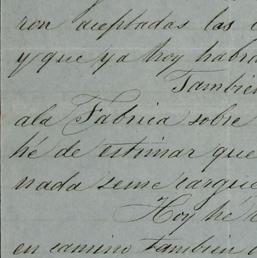 ron aceptadas las
y que ya hoy habra
Tambien
ala Fabrica sobre
hé de estimar que
nada seme cargue
Hoy hé
en camino tambien